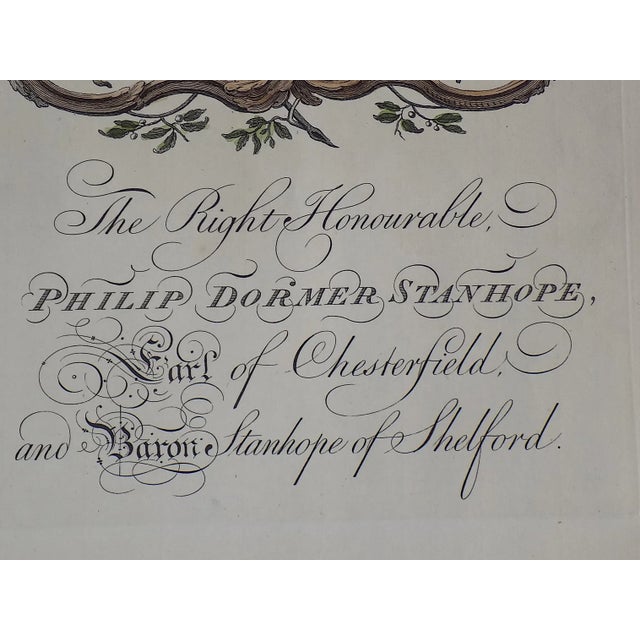 The Right Honourable,
PHILIP DORMER STANHOPE,
Earl of Chesterfield,
and Baron Stanhope of Shelford.